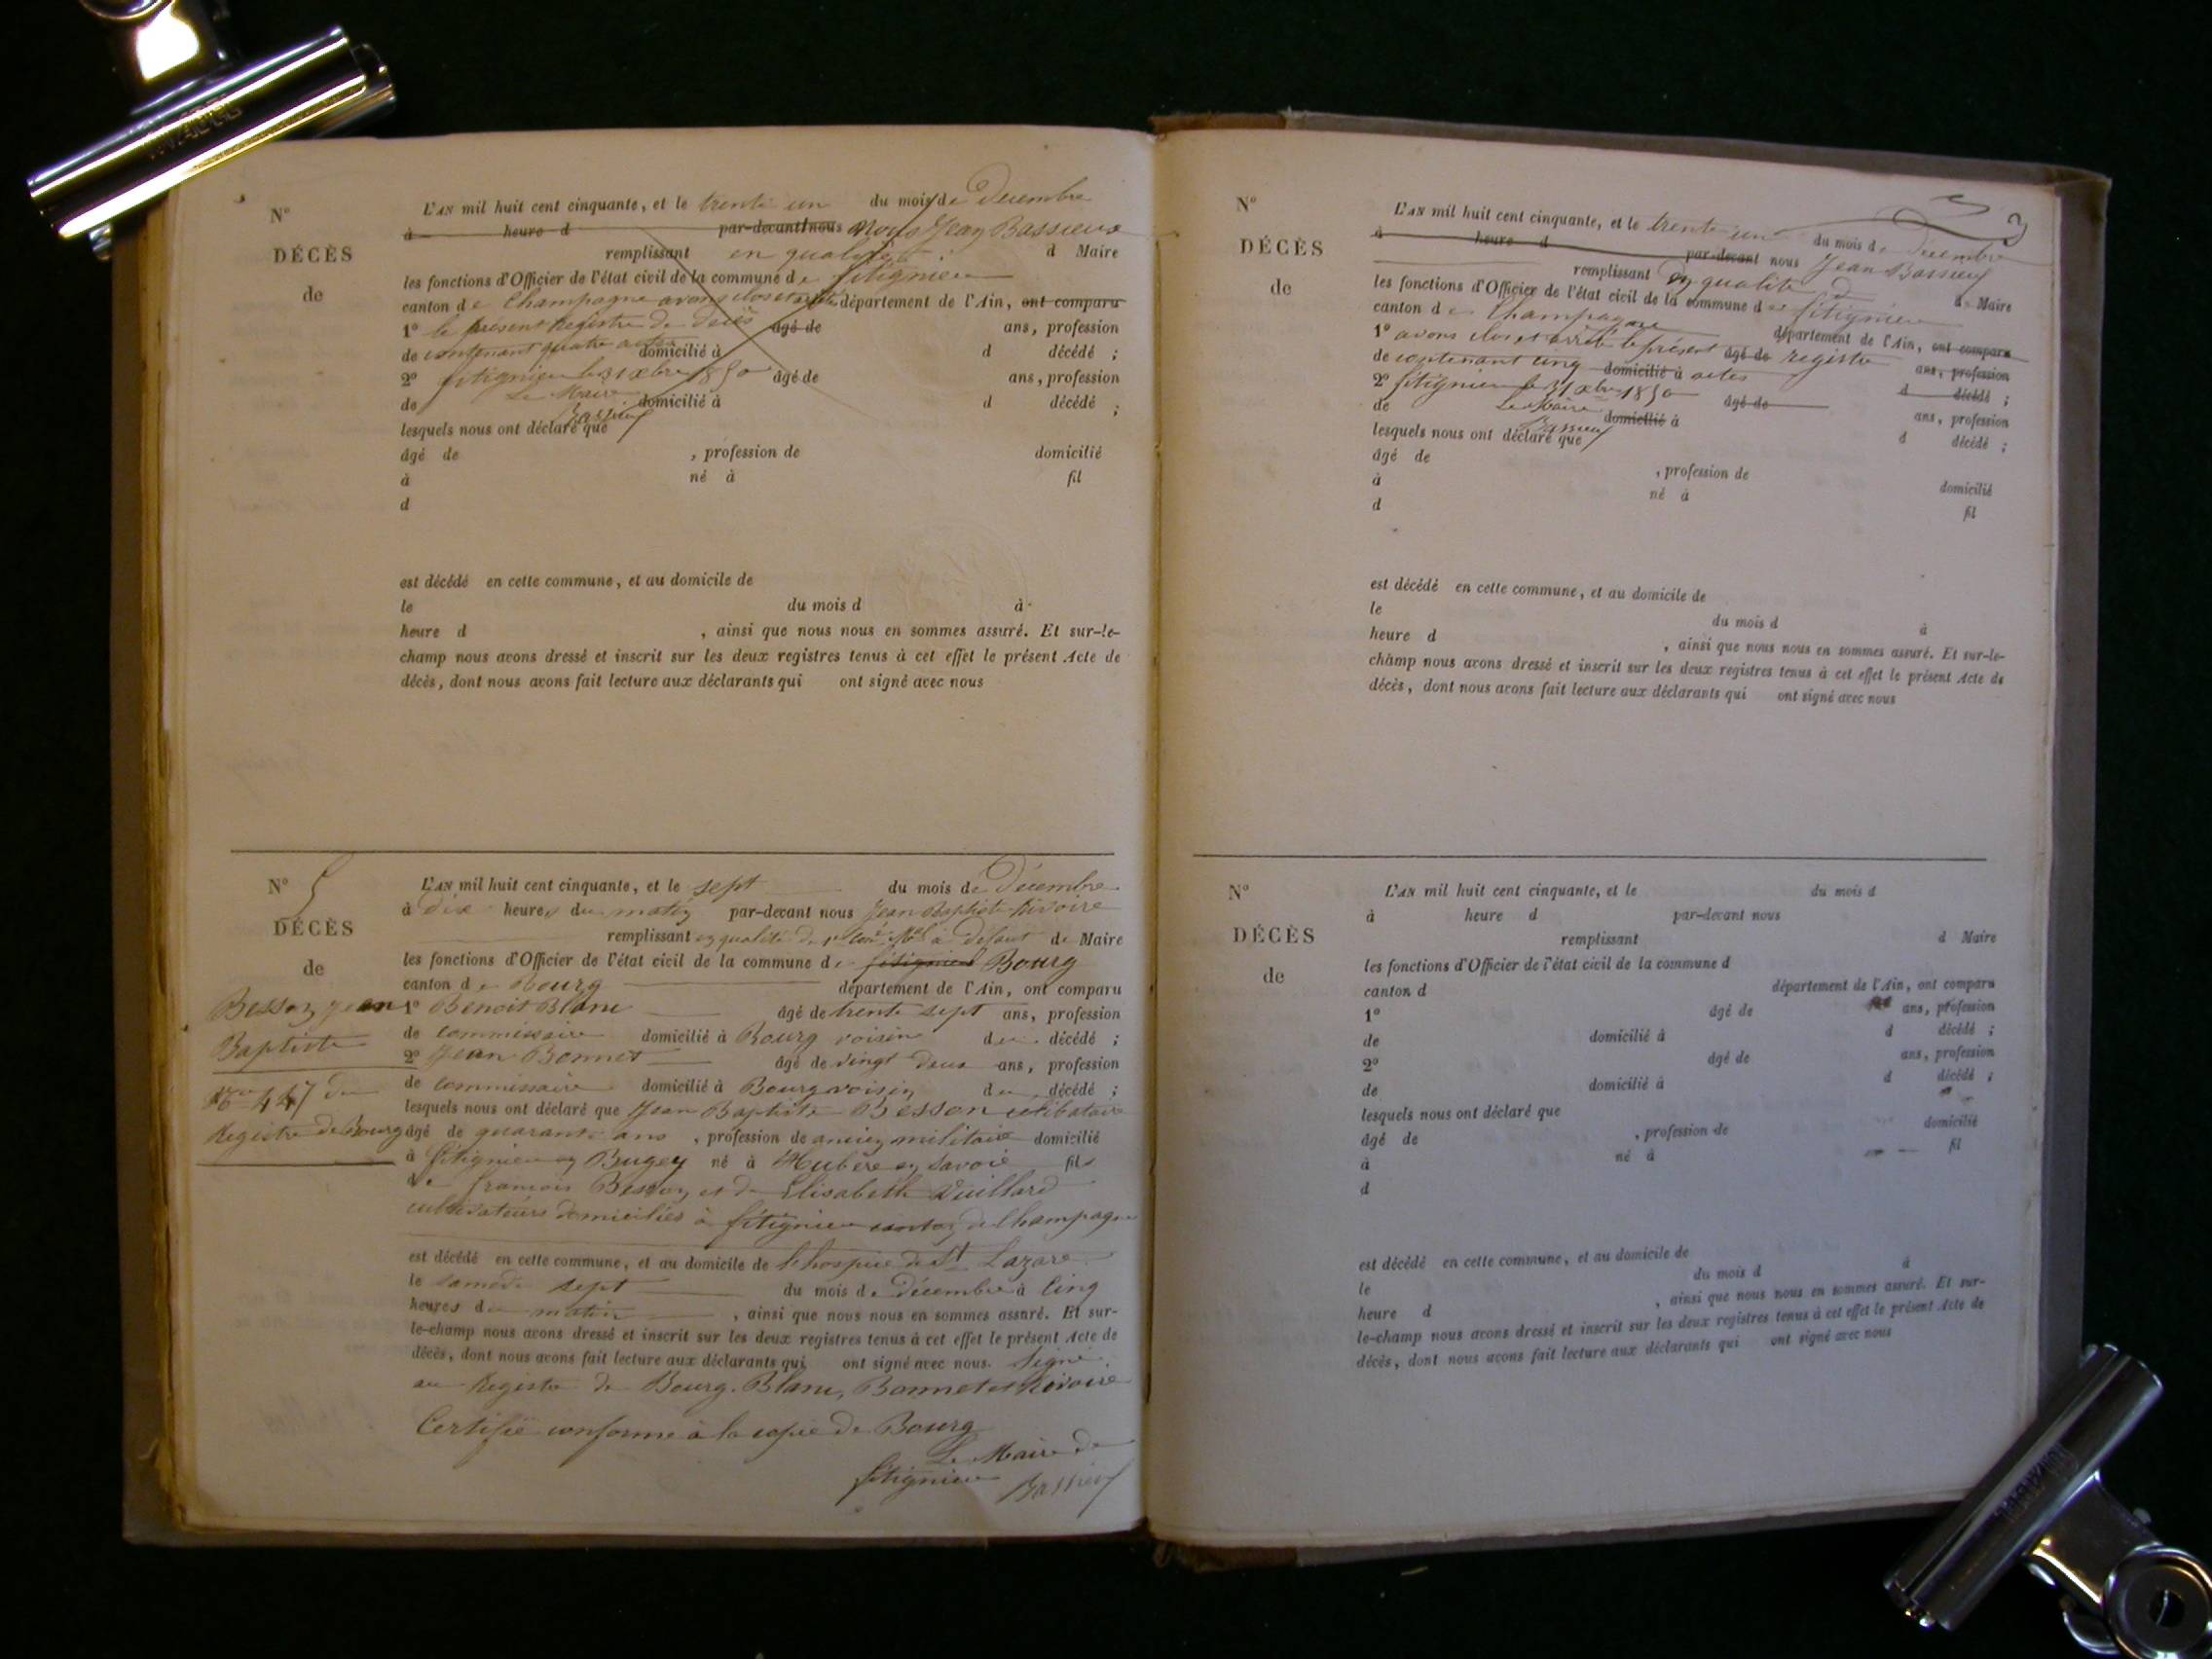 N°
DÉCÈS
de
L'AN mil huit cent cinquante, et le trente un du mois de Décembre
à heure d par-devant nous Nous Jean Bassieux
remplissant en qualité d Maire
les fonctions d'Officier de l'état civil de la commune de fitignieu
canton de Champagne avons clos et arrêté département de l'Ain, ont comparu
1° le présent Registre de decès âgé de ans, profession
de contenant quatre actes domicilié à d décédé ;
2° fitignieu le 31 xbre 1850 âgé de ans, profession
de Le Maire domicilié à d décédé ;
lesquels nous ont déclaré que Bassieux
âgé de , profession de domicilié
à né à fil
d
est décédé en cette commune, et au domicile de
le du mois d à
heure d , ainsi que nous nous en sommes assuré. Et sur-le-
champ nous avons dressé et inscrit sur les deux registres tenus à cet effet le présent Acte de
décès, dont nous avons fait lecture aux déclarants qui ont signé avec nous
N° 5
DÉCÈS
de
Besson Jean
Baptiste
N° 447 du
Registre de Bourg
L'AN mil huit cent cinquante, et le sept du mois de Décembre
à dix heures du matin par-devant nous Jean Baptiste Rivoire
remplissant en qualité de 1er Conr Mal à defaut de Maire
les fonctions d'Officier de l'état civil de la commune de fitignieu Bourg
canton de Bourg département de l'Ain, ont comparu
1° Benoit Blanc âgé de trente sept ans, profession
de commissaire domicilié à Bourg voisin du décédé ;
2° Jean Bonnet âgé de vingt deux ans, profession
de commissaire domicilié à Bourg voisin du décédé ;
lesquels nous ont déclaré que Jean Baptiste Besson celibataire
âgé de quarante ans , profession de ancien militaire domicilié
à fitignieu en Bugey né à en Savoie fils
de francois Besson et de Elisabeth Vuillard
cultivateurs domiciliés à fitignieu canton de Champagne
est décédé en cette commune, et au domicile de l'hospice de St Lazare
le samedi sept du mois de décembre à cinq
heures du matin , ainsi que nous nous en sommes assuré. Et sur-
le-champ nous avons dressé et inscrit sur les deux registres tenus à cet effet le présent Acte de
décès, dont nous avons fait lecture aux déclarants qui ont signé avec nous. Signé
au Registre de Bourg. Blanc, Bonnet et Rivoire
Certifié conforme à la copie de Bourg
Le Maire de
fitignieu Bassieux
N°
DÉCÈS
de
L'AN mil huit cent cinquante, et le trente un du mois de Décembre
à heure d par-devant nous Jean Bassieux
remplissant en qualité de Maire
les fonctions d'Officier de l'état civil de la commune de fitignieu
canton de Champagne département de l'Ain, ont comparu
1° avons clos et arrêté le présent âgé de registre ans, profession
de contenant cinq domicilié à actes d décédé ;
2° fitignieu le 31 xbre 1850 âgé de ans, profession
de Le Maire domicilié à d décédé ;
lesquels nous ont déclaré que Bassieux
âgé de , profession de domicilié
à né à fil
d
est décédé en cette commune, et au domicile de
le du mois d à
heure d , ainsi que nous nous en sommes assuré. Et sur-le-
champ nous avons dressé et inscrit sur les deux registres tenus à cet effet le présent Acte de
décès, dont nous avons fait lecture aux déclarants qui ont signé avec nous
N°
DÉCÈS
de
L'AN mil huit cent cinquante, et le du mois d
à heure d par-devant nous
remplissant d Maire
les fonctions d'Officier de l'état civil de la commune d
canton d département de l'Ain, ont comparu
1° âgé de ans, profession
de domicilié à d décédé ;
2° âgé de ans, profession
de domicilié à d décédé ;
lesquels nous ont déclaré que
âgé de , profession de domicilié
à né à fil
d
est décédé en cette commune, et au domicile de
le du mois d à
heure d , ainsi que nous nous en sommes assuré. Et sur-
le-champ nous avons dressé et inscrit sur les deux registres tenus à cet effet le présent Acte de
décès, dont nous avons fait lecture aux déclarants qui ont signé avec nous